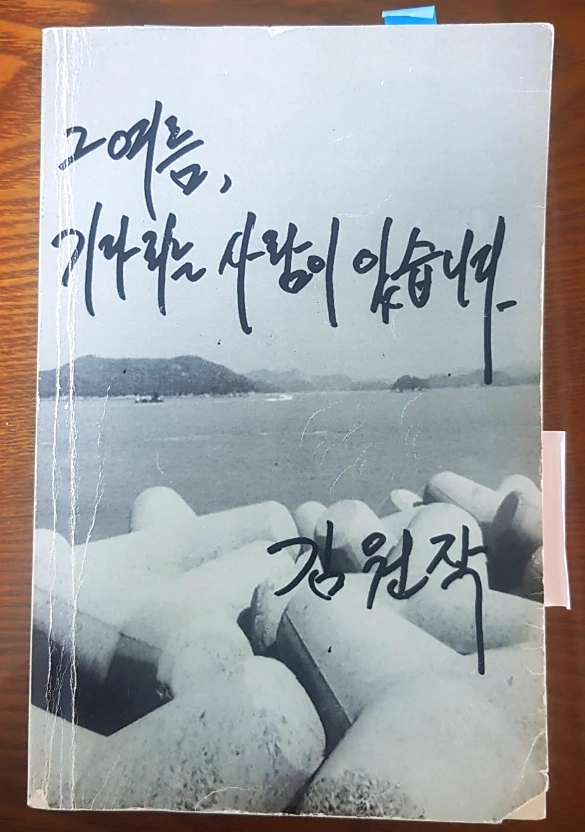 그 여름,
기다리는 사람이 있습니다.
김원작